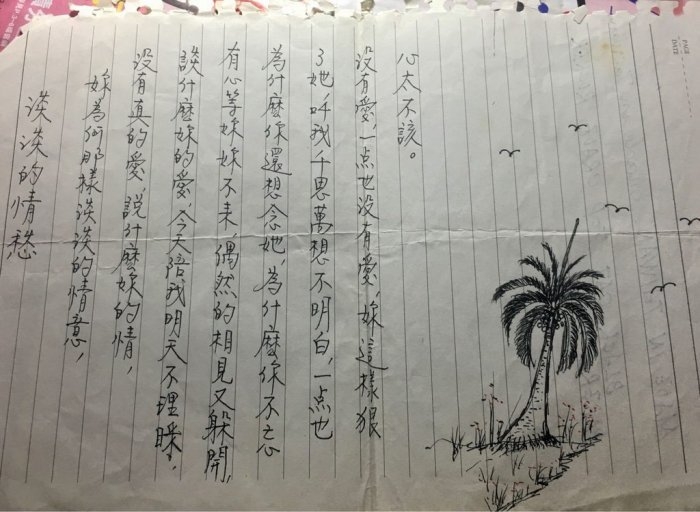 淡淡的情愁
妳為何那樣淡淡的情意,
没有真的愛,說什麼妳的情,
談什麼妳的愛,今天陪我明天不理睬,
有心等妳妳不來,偶然的相見又躲開,
為什麼你還想念她,為什麼你不忘
了她,叫我千思萬想不明白,一点也
没有愛一点也没有愛,妳這樣狠
心太不該。
PAGE
DATE